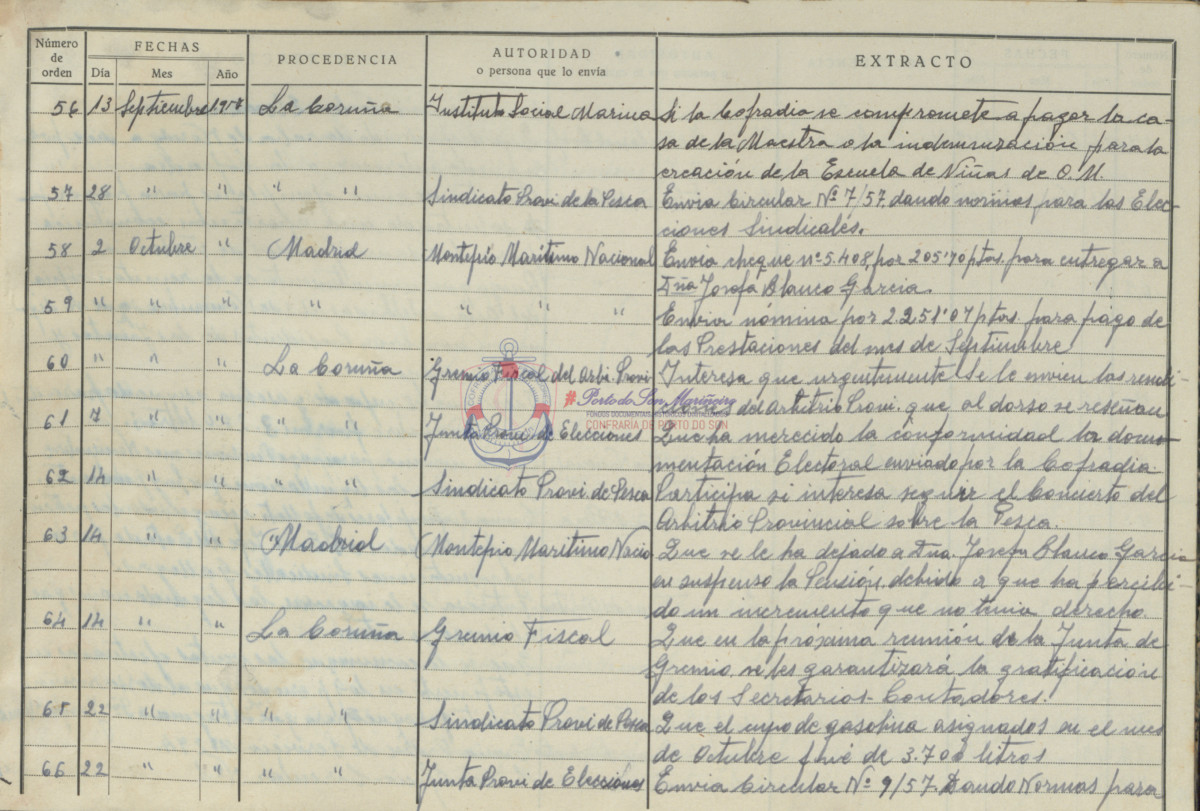 Número de orden FECHAS Día Mes Año PROCEDENCIA AUTORIDAD o persona que lo envía EXTRACTO
56 13 Septiembre 1957 La Coruña Instituto Social Marina Si la Cofradia se compromete a pagar la ca-
sa de la Maestra o la indemnización para la
creación de la Escuela de Niñas de O.M.
57 28 " " " " Sindicato Provi de la Pesca Envia Circular Nº 7/57, dando normas para las Elec-
ciones Sindicales.
58 2 Octubre " Madrid Montepio Maritimo Nacional Envia cheque nº 5.408, por 205'70 ptas. para entregar a
Dña Josefa Blanco Garcia.
59 " " " " " " " Envia nómina por 2.251'07 ptas. para pago de
las Prestaciones del mes de Septiembre
60 " " " La Coruña Gremio Fiscal del Arbi. Provi Interesa que urgentemente se le envien las
del Arbitrio Provi. que al dorso se reseñan
61 7 " " " " Junta Provi de Elecciones Que ha merecido la conformidad la docu-
mentación Electoral enviado por la Cofradia.
62 14 " " " " Sindicato Provi de Pesca Participa si interesa seguir el Concierto del
Arbitrio Provincial sobre la Pesca.
63 14 " " Madrid Montepio Maritimo Nacio Que se le ha dejado a Dña. Josefa Blanco Garcia
en suspenso la Pensión, debido a que ha percibi-
do un incremento que no tenia derecho.
64 14 " " La Coruña Gremio Fiscal Que en la próxima reunión de la Junta de
Gremio, se les garantizará la gratificación
de los Secretarios-Contadores.
65 22 " " " " Sindicato Provi de Pesca Que el cupo de gasolina asignados en el mes
de Octubre fué de 3.700 litros
66 22 " " " " Junta Provi de Elecciones Envia Circular Nº 9/57. Dando Normas para
# Porto do Son Mariñeiro
CONFRARÍA DE PORTO DO SON